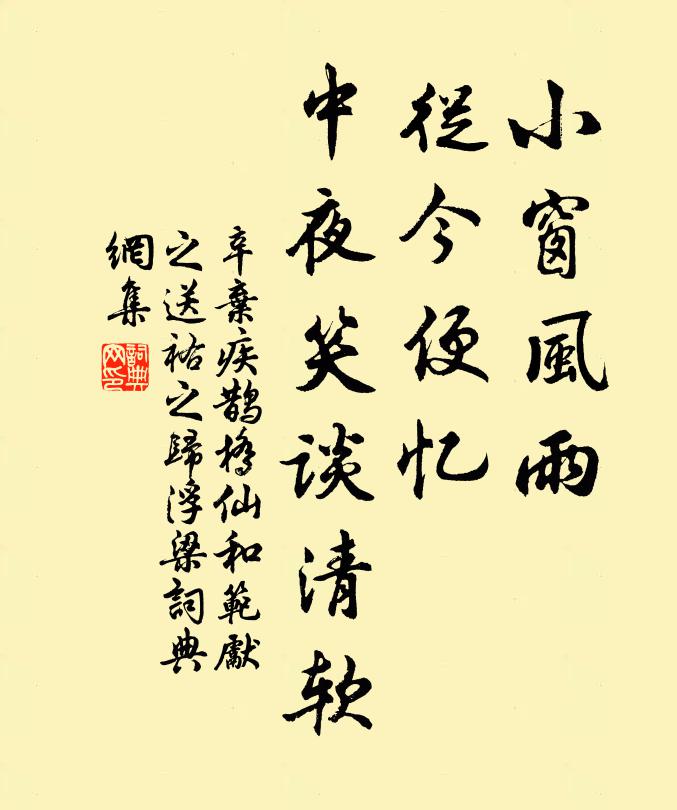 小窗風雨
從今便忆
中夜笑谈清软
辛棄疾鹊橋仙和範獻
之送祐之歸浮梁詞典
網集
詞典
网印